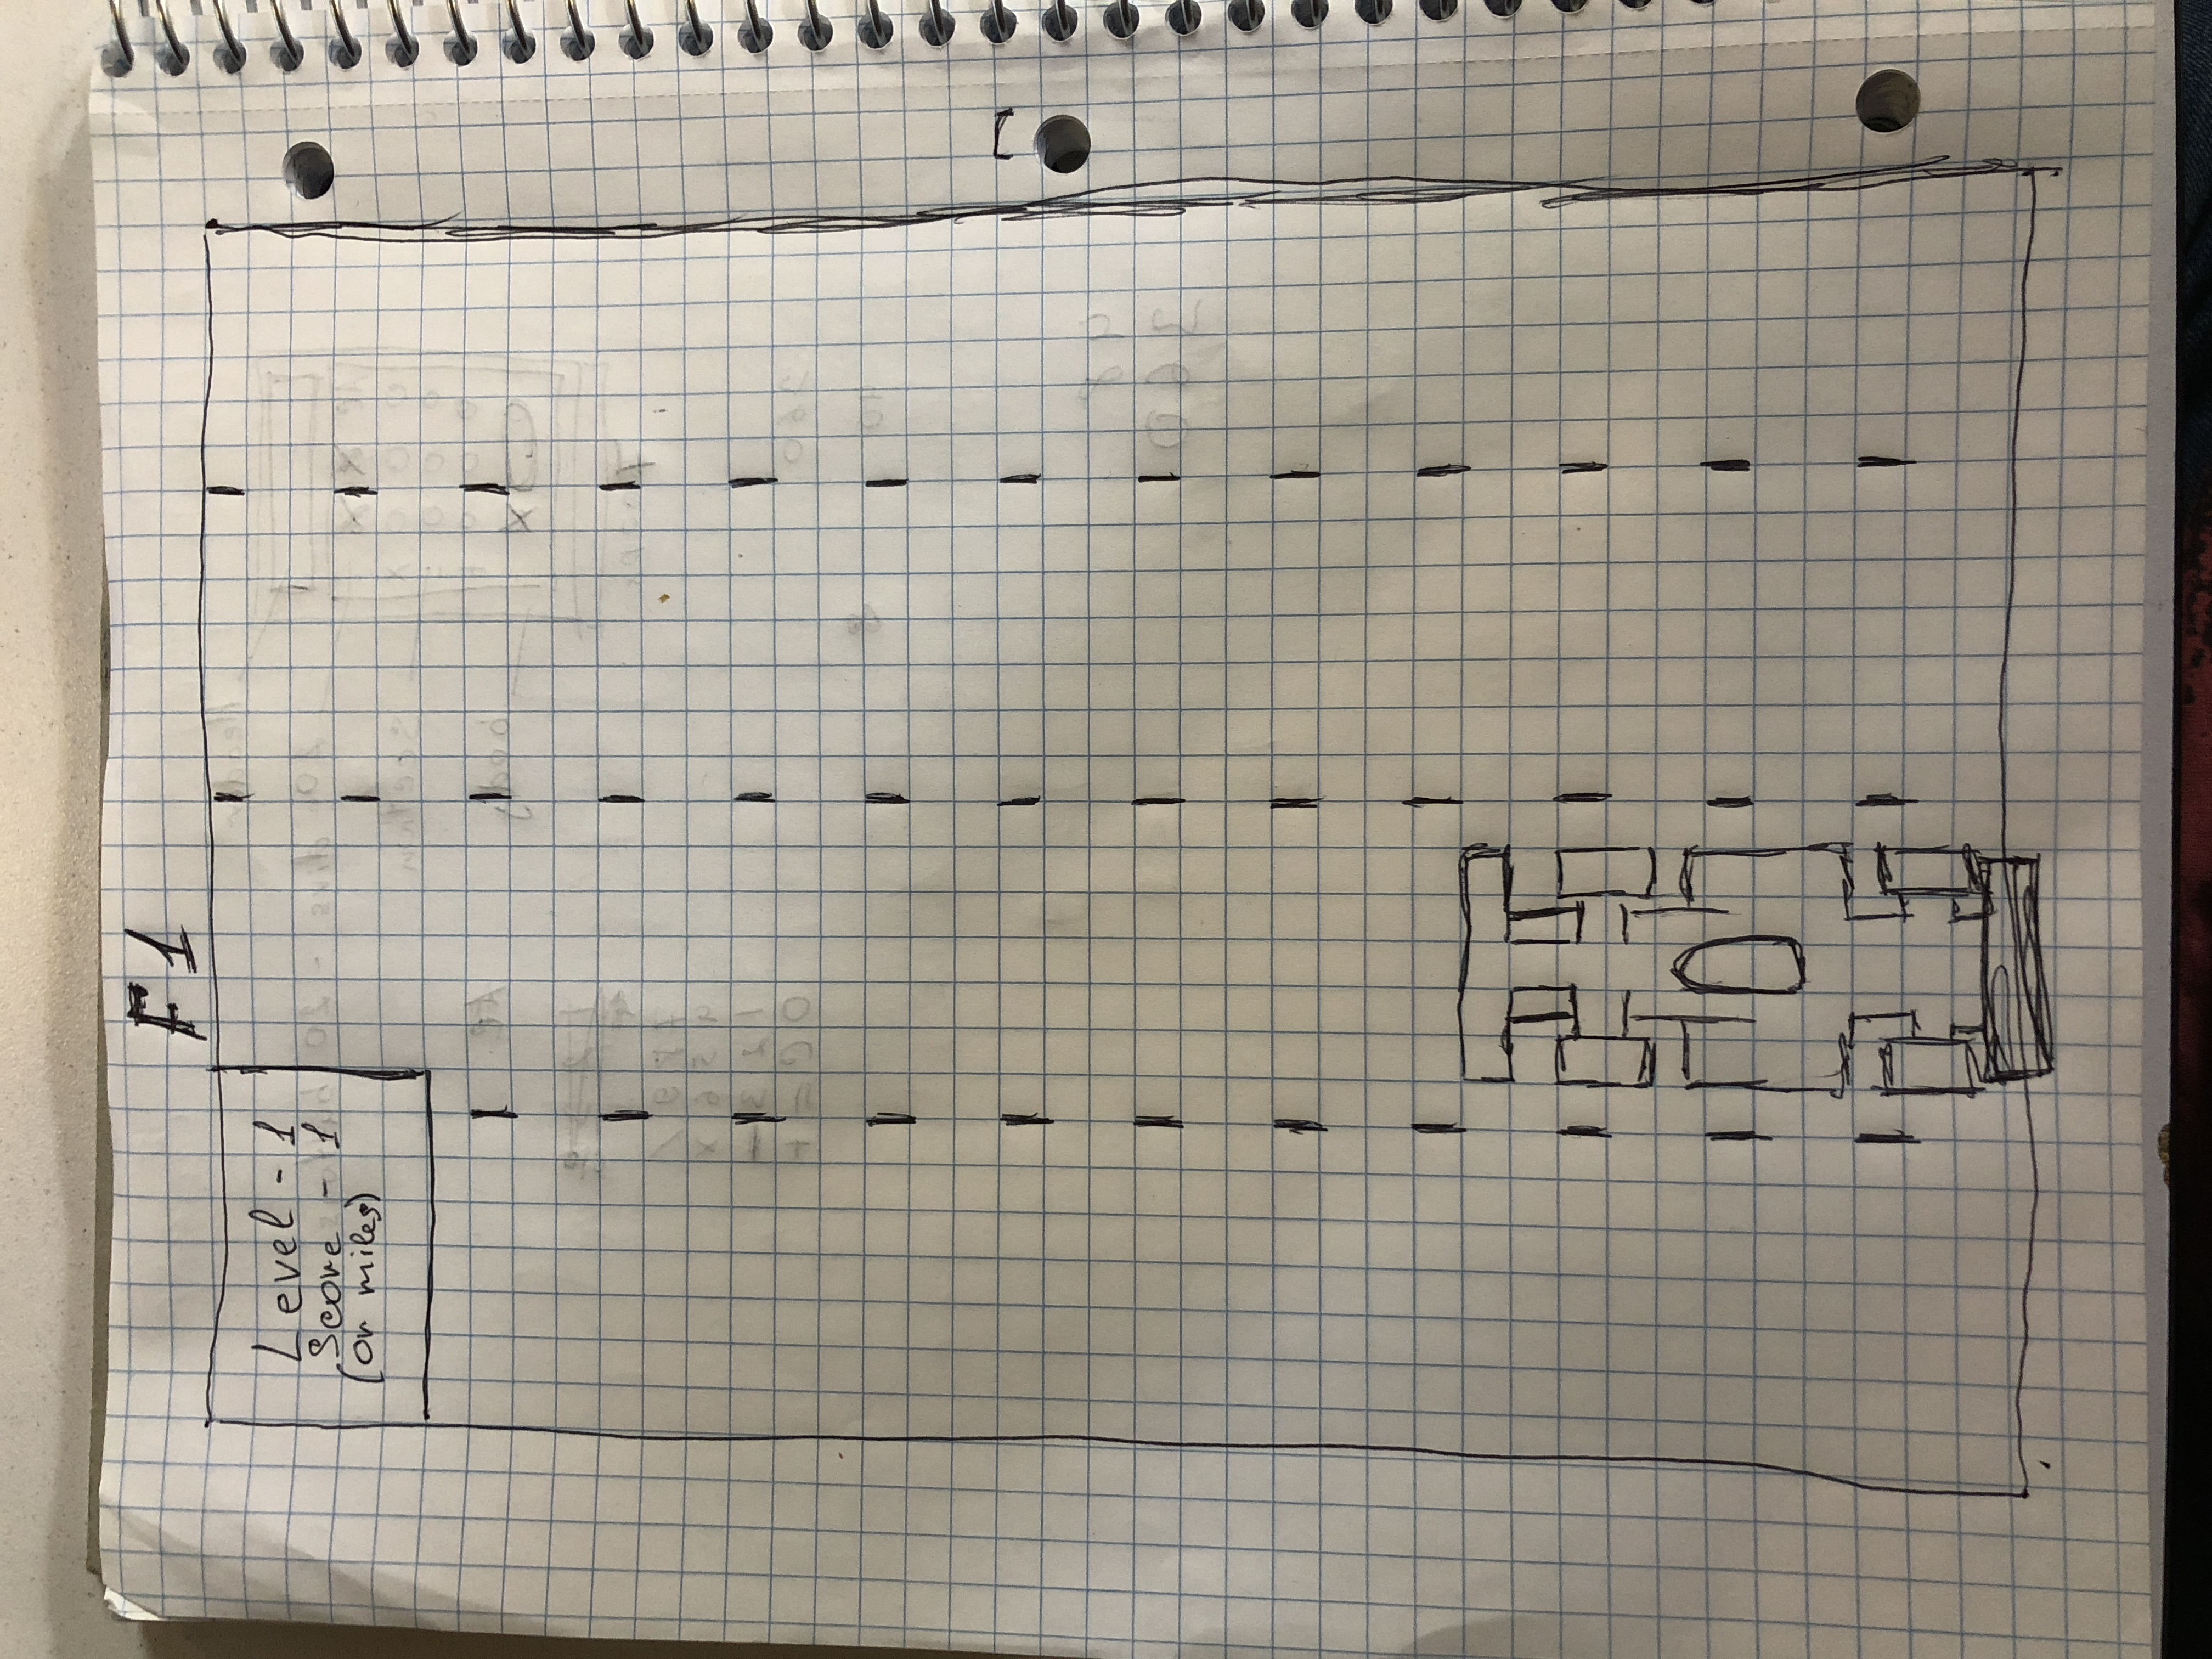 F1
Level - 1
Score - 1
(or miles)